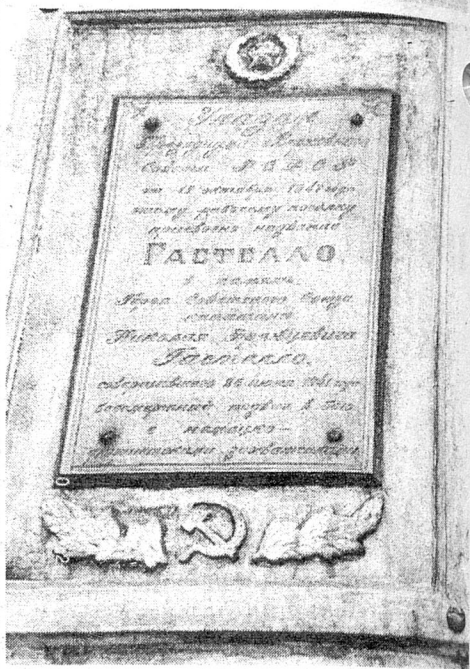 Указом
Президиума Верховного
Совета Р С Ф С Р
от 15 октября 1947 года
этому рабочему поселку
присвоено название
ГАСТЕЛЛО,
в память
Героя Советского Союза
капитана
Николая Францевича
Гастелло,
совершившего 26 июня 1941 года
подвиг в бою
с немецко-
фашистскими захватчиками